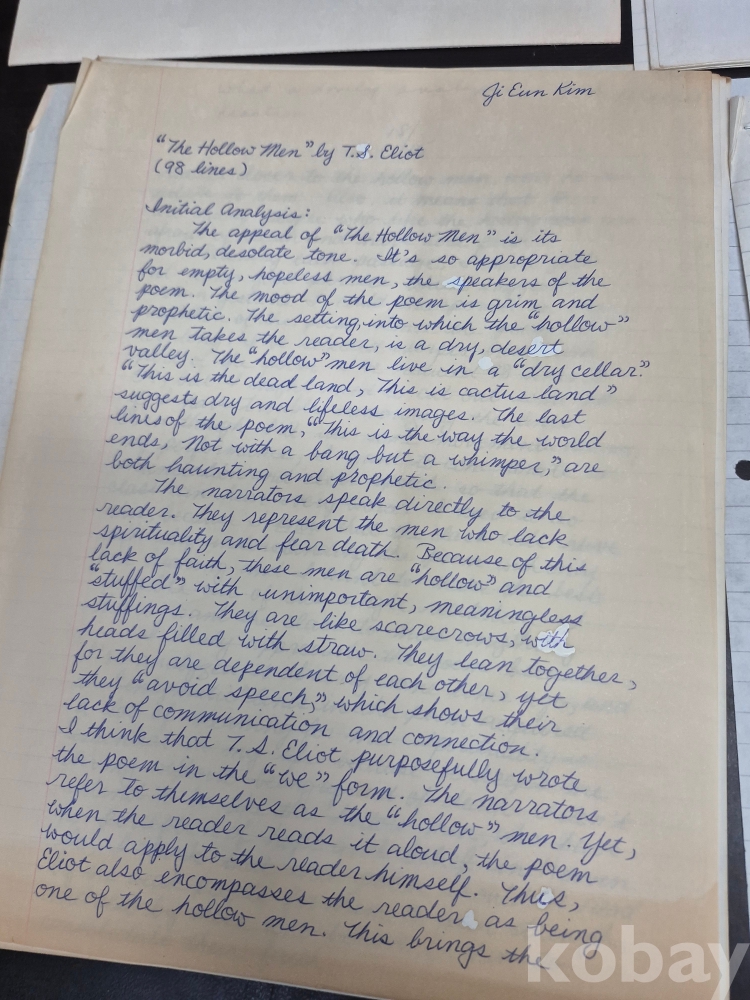 Ji Eun Kim
"The Hollow Men" by T.S. Eliot
(98 lines)
Initial Analysis:
The appeal of "The Hollow Men" is its
morbid, desolate tone. It's so appropriate
for empty, hopeless men, the speakers of the
poem. The mood of the poem is grim and
prophetic. The setting, into which the "hollow"
men takes the reader, is a dry, desert
valley. The "hollow" men live in a "dry cellar."
"This is the dead land, This is cactus land"
suggests dry and lifeless images. The last
lines of the poem, "This is the way the world
ends, Not with a bang but a whimper," are
both haunting and prophetic.
The narrators speak directly to the
reader. They represent the men who lack
spirituality and fear death. Because of this
lack of faith, these men are "hollow" and
"stuffed" with unimportant, meaningless
stuffings. They are like scarecrows, with
heads filled with straw. They lean together,
for they are dependent of each other, yet
they "avoid speech," which shows their
lack of communication and connection.
I think that T.S. Eliot purposefully wrote
the poem in the "we" form. The narrators
refer to themselves as the "hollow" men. Yet,
when the reader reads it aloud, the poem
would apply to the reader himself. Thus,
Eliot also encompasses the reader as being
one of the hollow men. This brings the
kobay